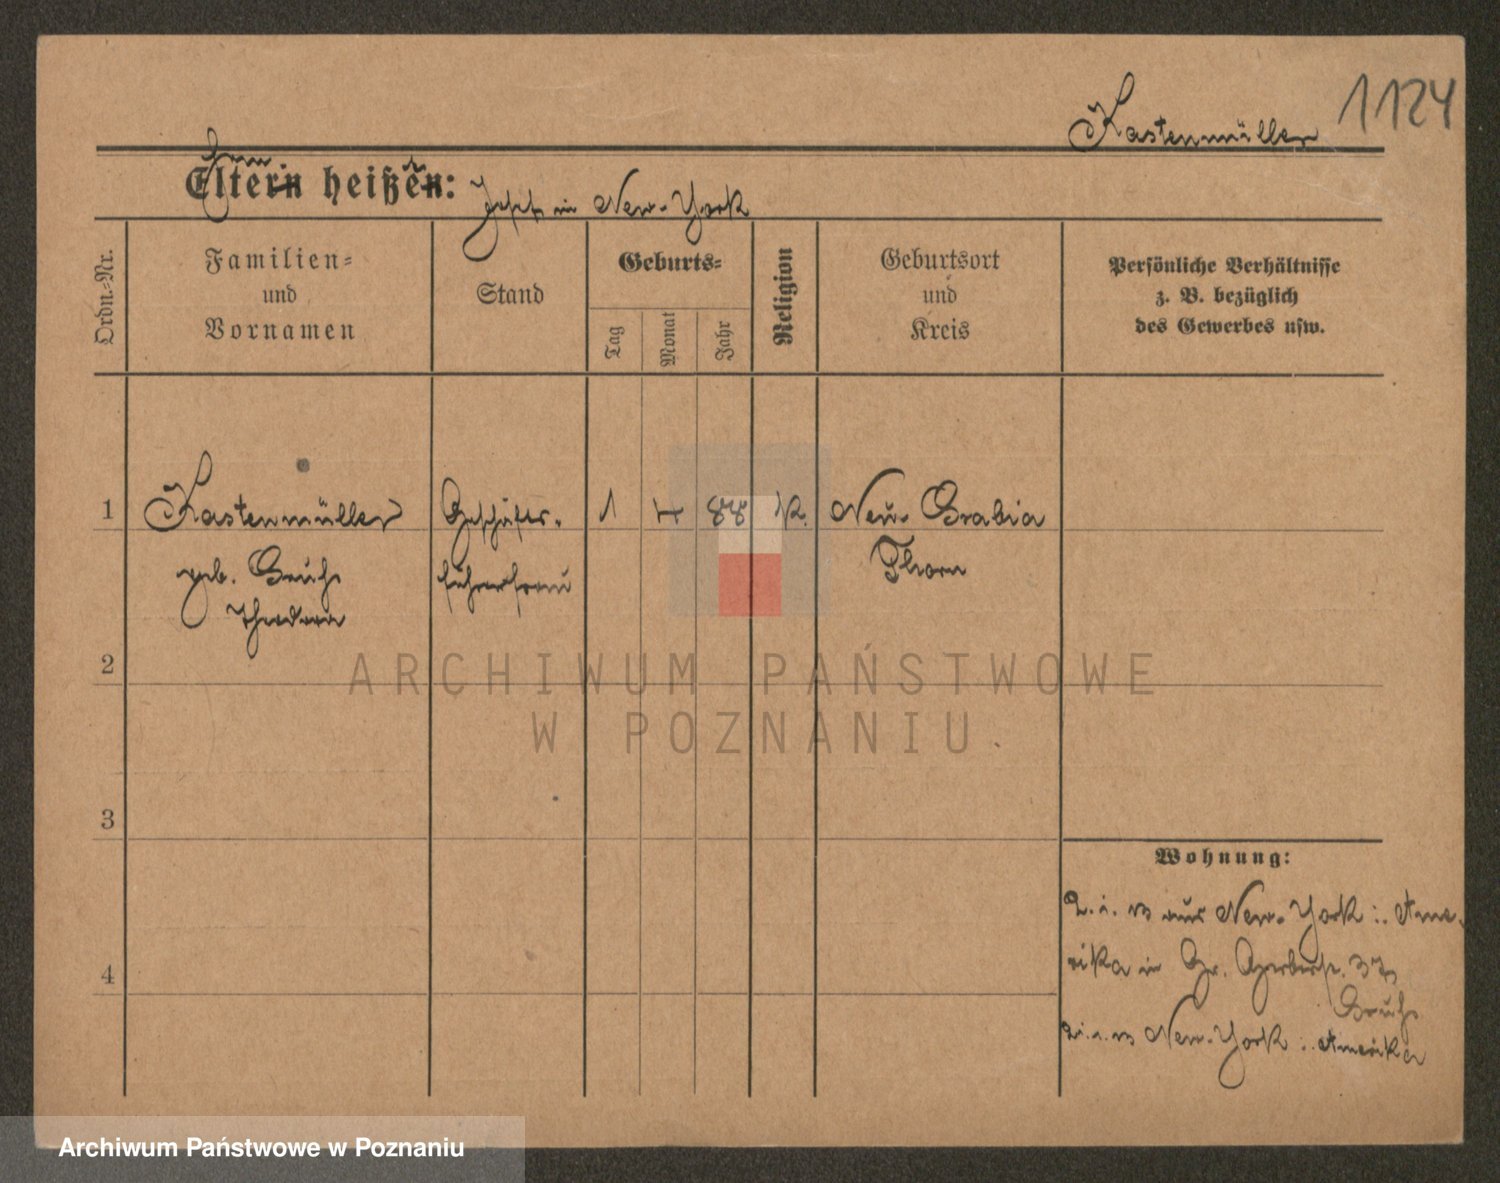 1124
Kastenmüller
Eltern heißen:
Josef in New-York
Ordn.-Nr.
Familien-
und
Vornamen
Stand
Geburts-
Tag
Monat
Jahr
Religion
Geburtsort
und
Kreis
Persönliche Verhältnisse
z. B. bezüglich
des Gewerbes usw.
1
Kastenmüller
geb. Bruhs
Theodora
Geschäfts-
führerfrau
1
4
88
K.
Neu-Grabia
Thorn
2
3
4
Wohnung:
aus New-York Ame-
rika in Gr. Gerberst. 37
Bruhs
New-York Amerika
ARCHIWUM PAŃSTWOWE
W POZNANIU
Archiwum Państwowe w Poznaniu